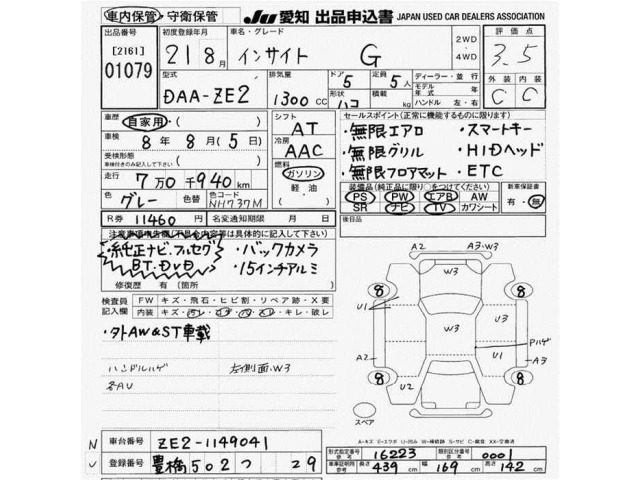 車内保管・守衛保管 JU 愛知 出品申込書 JAPAN USED CAR DEALERS ASSOCIATION
出品番号 [2161] 01079
初度登録年月 21年 8月
車名・グレード インサイト G
2WD・4WD
評価点 3.5
型式 DAA-ZE2
排気量 1300cc
ドア 5
定員 5人
形状 ハコ
積載 kg
ディーラー・並行
モデル年式 年式
ハンドル 左・右
外装 C
内装 C
車歴 自家用・( )
シフト AT
車検 8年 8月(5日)
冷房 AAC
受検形態 車検付きのみ記入して下さい ( )
燃料 ガソリン 軽油 ( )
走行 7万0千940km
色 グレー
色替
色コード NH737M
R券 11460円
名変通知期限 月 日
セールスポイント(正常に機能するものに限ります)
・無限エアロ ・スマートキー
・無限グリル ・HIDヘッド
・無限フロアマット ・ETC
装備品(純正品に限り○をつけてください)
PS PW エアB AW
SR ナビ TV カワシート
新車保証書 有・無
後日品
注意事項報告欄(不具合内容等は具体的に記入して下さい)
・純正ナビ・フルセグ ・バックカメラ
BT・DVD ・15インチアルミ
修復歴 有(箇所 )
検査員記入欄
FW キズ・飛石・ヒビ割・リペア跡・X要
内装 キズ・汚レ・コゲ・穴・スレ・キレ・破レ
・外AW&ST車載
ハンドルハゲ 左側面・W3
各AU
A2 A3・W3
W3
8 8
U1 W3 Pハゲ
A2 U1 A3
8 U2 8
W3
スペア
A-キズ E-エクボ U-凹み W-補修跡 S-サビ C-腐食 XX-交換済
車台番号 ZE2-1149041
登録番号 豊橋 502 つ 29
型式指定番号 16223
類別区分番号 0001
車庫証明用参考 長さ 439cm 幅 169cm 高さ 142cm